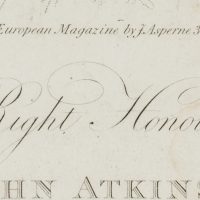 European Magazine by J. Asperne 3
Right Honou
HN ATKINS